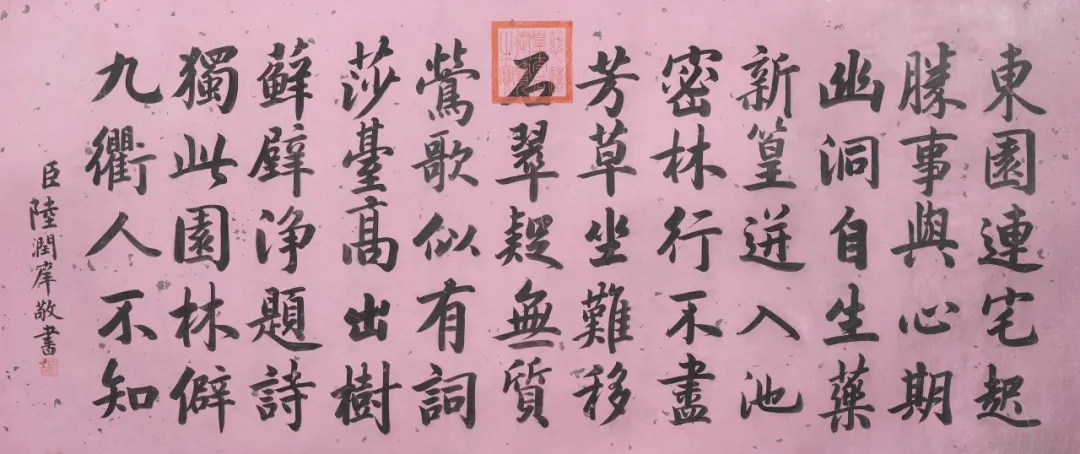 東園連宅起
勝事與心期
幽洞自生藥
新篁迸入池
密林行不盡
芳草坐難移
石翠疑無質
鶯歌似有詞
莎臺高出樹
蘚壁淨題詩
獨此園林僻
九衢人不知
臣陸潤庠敬書